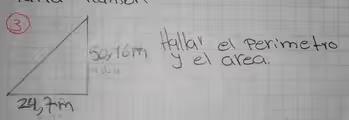 3
50,16m Hallar el Perimetro
y el area.
24,7m